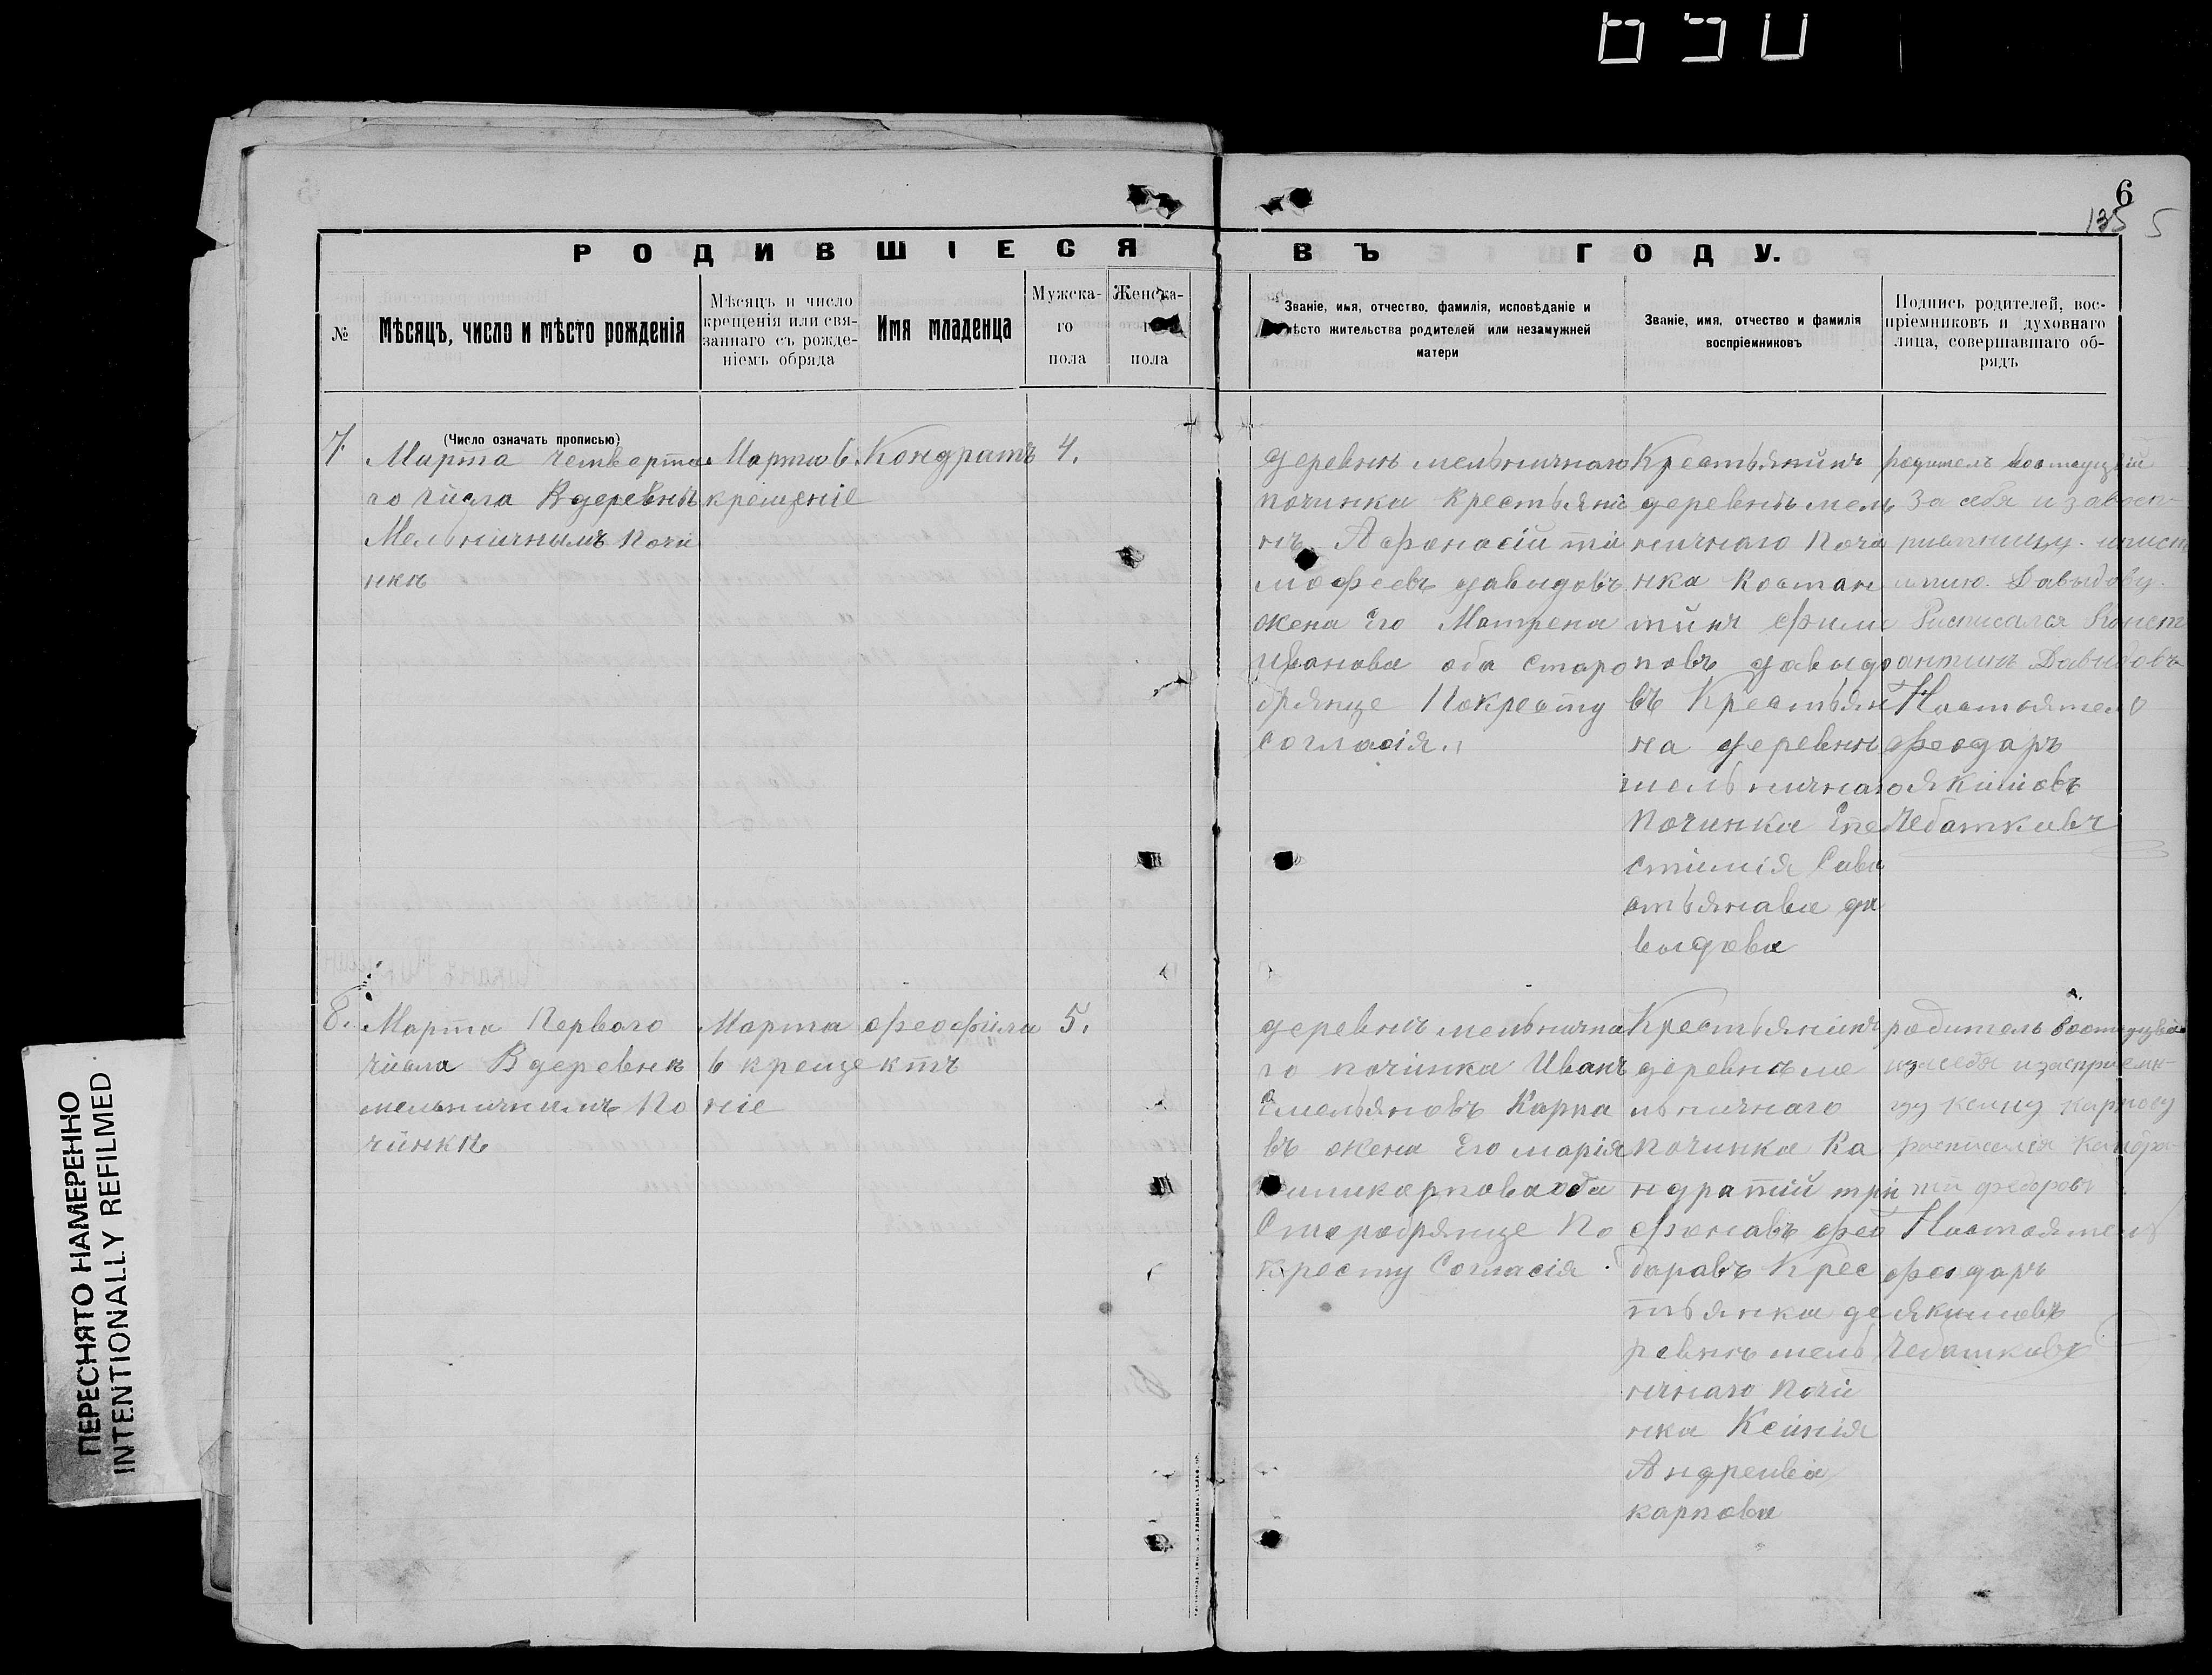 650
6
135 5
РОДИВШІЕСЯ ВЪ ГОДУ.
№
Мѣсяцъ, число и мѣсто рожденія
Мѣсяцъ и число
крещенія или свя-
заннаго съ рожде-
ніемъ обряда
Имя младенца
Мужска-
го
пола
Женска-
го
пола
Званіе, имя, отчество, фамилія, исповѣданіе и
мѣсто жительства родителей или незамужней
матери
Званіе, имя, отчество и фамилія
воспріемниковъ
Подпись родителей, вос-
пріемниковъ и духовнаго
лица, совершавшаго об-
рядъ
(Число означать прописью)
7.
Марта четверта
го числа Вдеревнѣ
Мельничнымъ почи
нкѣ
Марта 6.
крещеніе
Кондратъ
4.
деревнѣ мельничнаго
починка крестьяни
нъ Афонасій ти
мофеевъ давыдовъ
жена Его Матрена
Иванова оба старо
брянце Покресту
согласія.
Крестьянинъ
деревнѣ мель
ничнаго Почи
нка Костан
тинъ Фили
повъ давыдо
въ Крестьян
на деревни
мельничнаго
Починка Епе
стимія Сава
стьянава да
выдова
родитель
За себя и завосп
Давыдову.
Расписался Конст
антинъ Давыдовъ
Настоятель
феодаръ
якимовъ
Чебатковъ
8.
Марта Перваго
числа Вдеревнѣ
мельничнымъ по
чинкѣ
Марта
6 креще
ніе
феофила
ктъ
5.
деревнѣ мельнична
го починка Иванъ
Емельяновъ Карпа
въ жена Его марія
поликарповаоба
Старобрянце По
кресту Согласія
Крестьянинъ
деревнѣ ме
льничнаго
починка Ка
ндратій три
фонавъ фео
даравъ Крес
тьянка де
ревнѣ мель
ничнаго почи
нка Ксинія
Андреива
карпова
родитель
карпову
федоровъ
Настоятель
феодаръ
якимовъ
Чебатковъ
ПЕРЕСНЯТО НАМЕРЕННО
INTENTIONALLY REFILMED